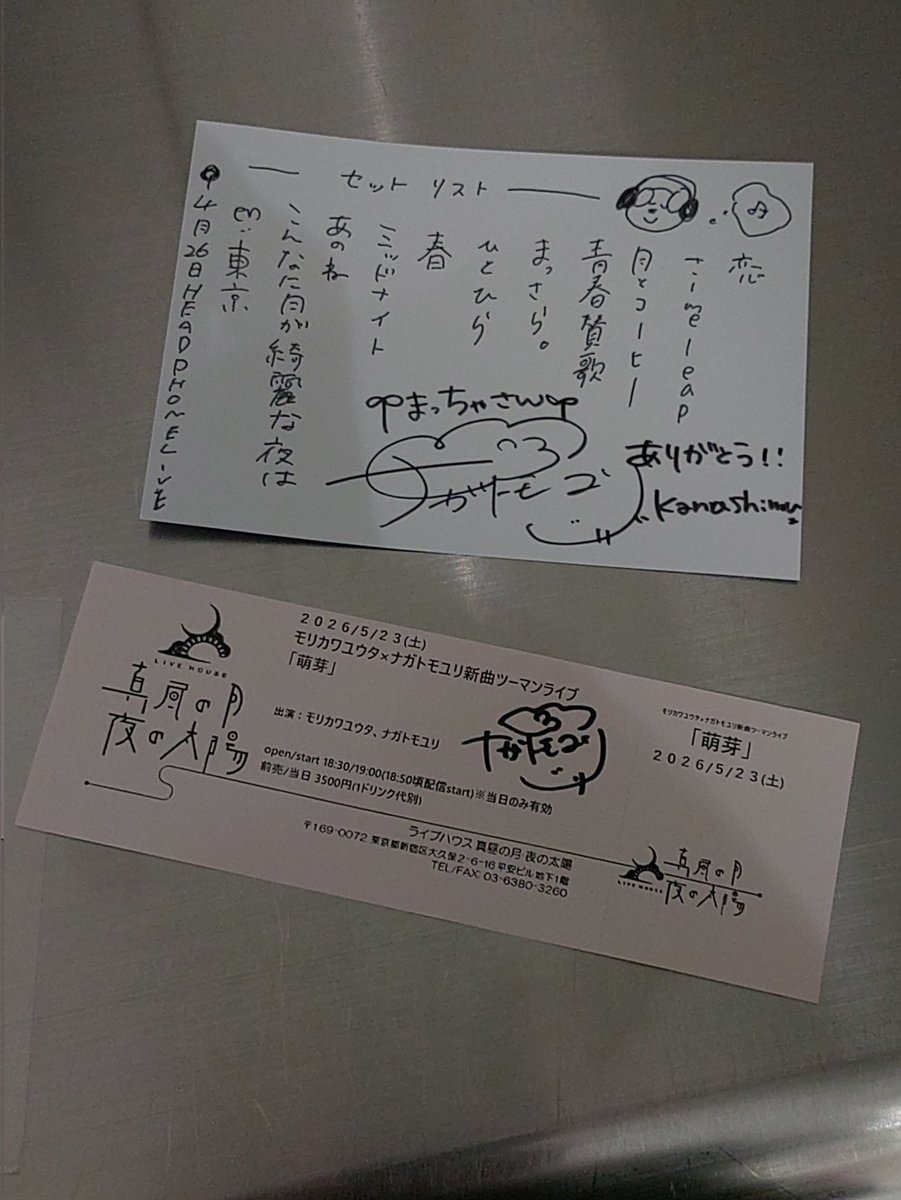 セットリスト
恋
timeleap
月とコーヒー
青春賛歌
まっさら。
ひとひら
春
ミッドナイト
あのね
こんなに月が綺麗な夜は
en:東京
4月26日HEADPHONELIVE
まっちゃさん
ナガトモユリ
ありがとう!!
LIVE HOUSE
真昼の月
夜の太陽
2026/5/23(土)
モリカワユウタ×ナガトモユリ新曲ツーマンライブ
「萌芽」
出演:モリカワユウタ、ナガトモユリ
open/start 18:30/19:00(18:50頃配信start)※当日のみ有効
前売/当日 3500円(1ドリンク代別)
ライブハウス 真昼の月 夜の太陽
〒169-0072 東京都新宿区大久保2-6-16 平安ビル地下1階
TEL/FAX: 03-6380-3260
ナガトモユリ
モリカワユウタ×ナガトモユリ新曲ツーマンライブ
「萌芽」
2026/5/23(土)
LIVE HOUSE
真昼の月
夜の太陽